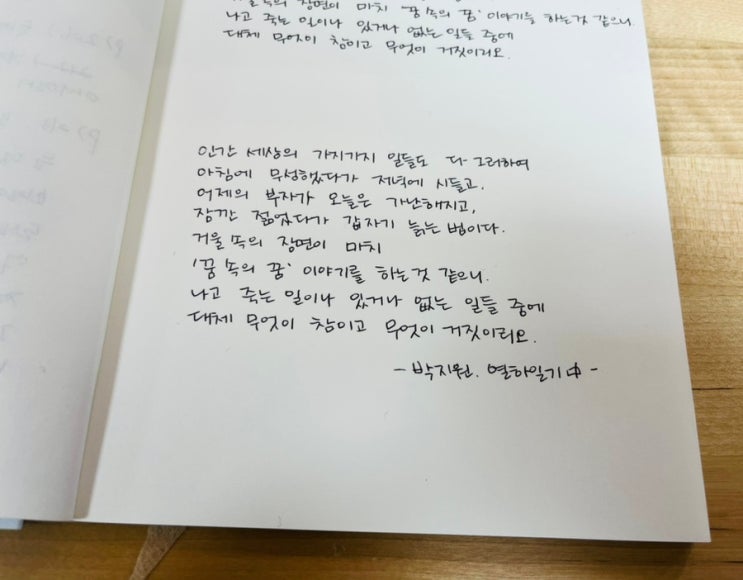 장면이 마치 '꿈 속의 꿈' 이야기를 하는것 같으니.
나고 죽는 일이나 있거나 없는 일들 중에
대체 무엇이 참이고 무엇이 거짓이리요.
인간 세상의 가지가지 일들도 다 그러하여
아침에 무성했다가 저녁에 시들고,
어제의 부자가 오늘은 가난해지고,
잠깐 젊었다가 갑자기 늙는 법이다.
거울 쏙의 장면이 마치
'꿈 속의 꿈' 이야기를 하는것 같으니.
나고 죽는 일이나 있거나 없는 일들 중에
대체 무엇이 참이고 무엇이 거짓이리요.
- 박지원. 열하일기 中 -